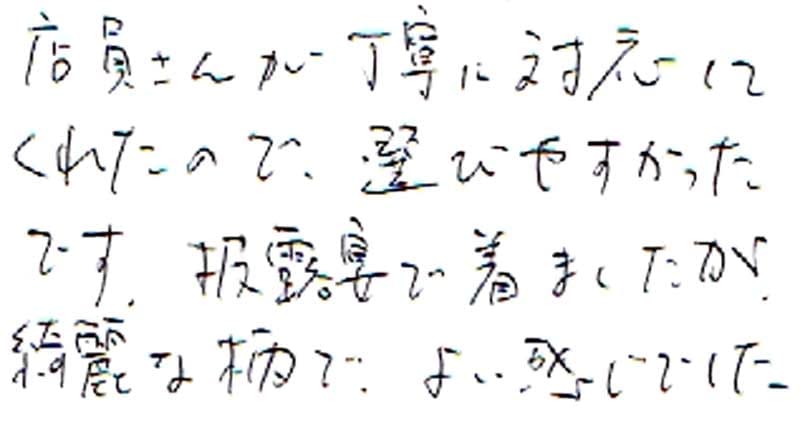 店員さんが丁寧に対応して
くれたので、選びやすかった
です。披露宴で着ましたが、
綺麗な柄で、よい感じでした